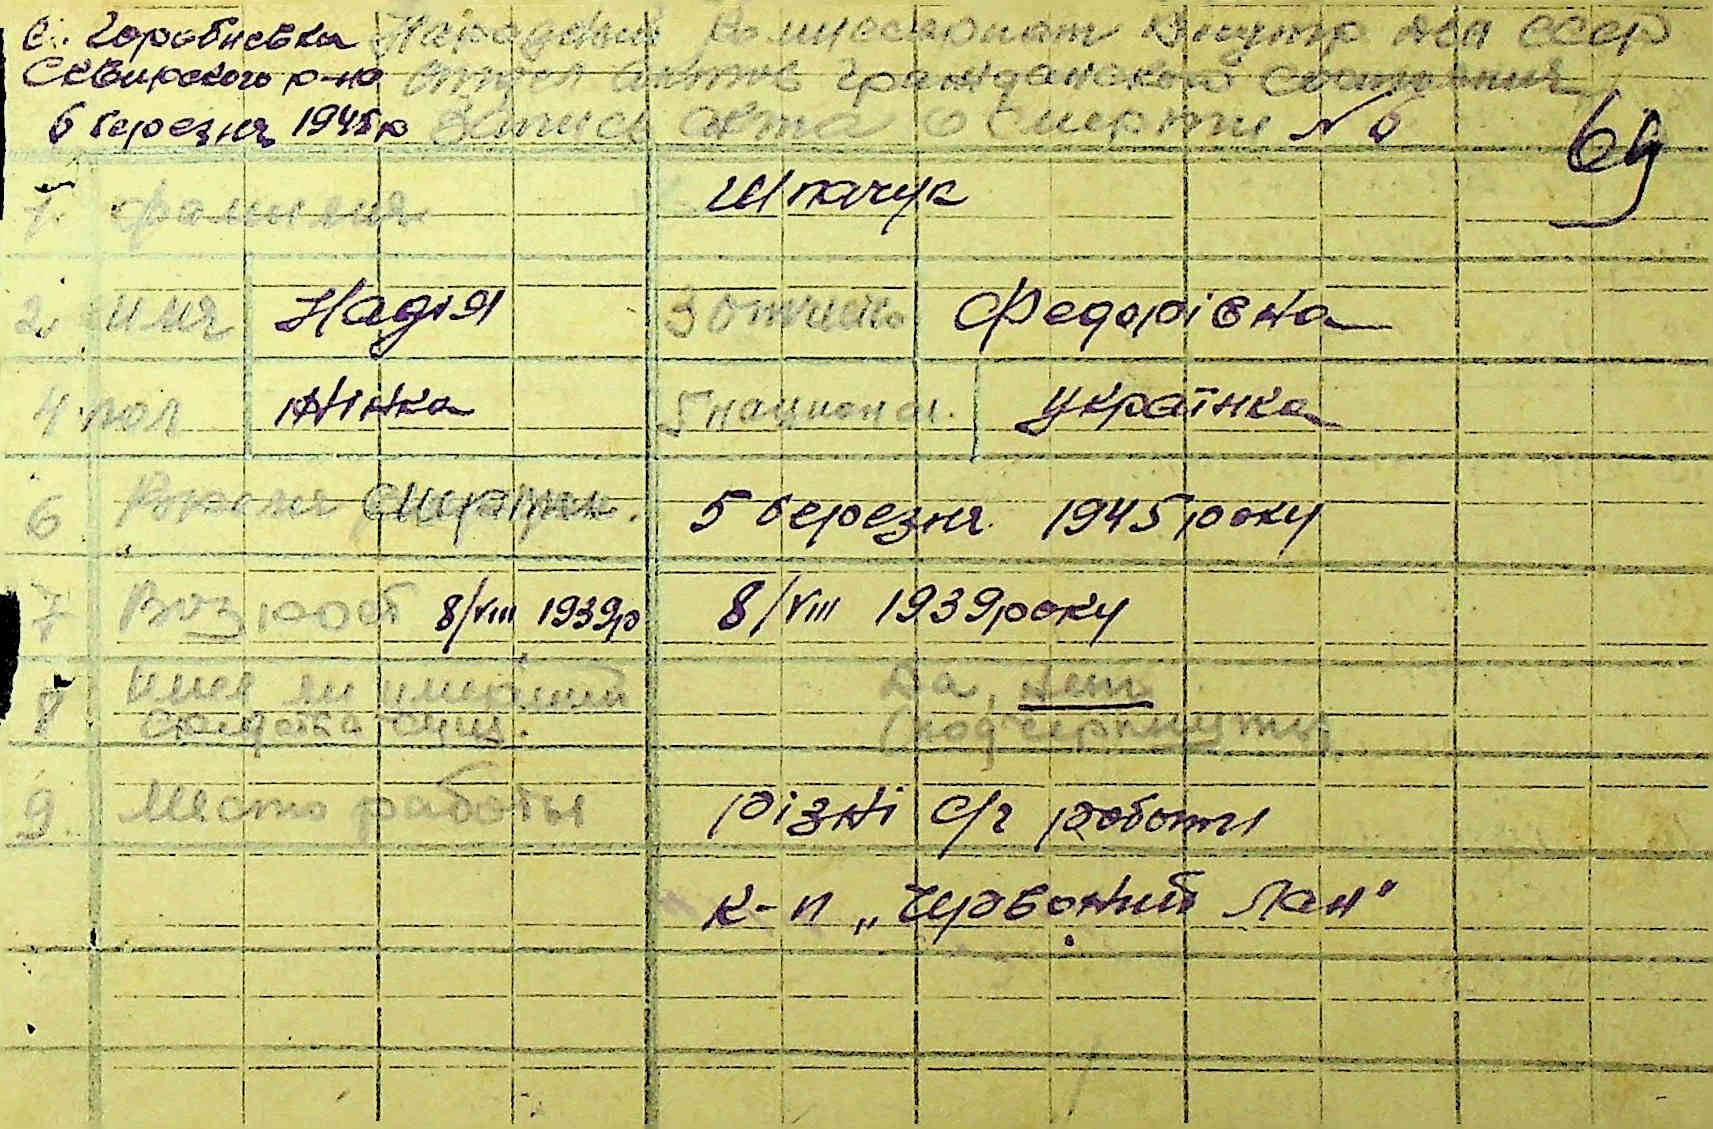 с. Горобіевка Народный Комиссариат Внутр дел СССР
Сквирского р-на Отдел актов гражданского состояния
6 березня 1945р Запись акта о смерти №6
69
1. Фамилия Шпачук
2. имя Надія 3 отчество Федорівна
4 пол жінка 5 национал. українка
6 Время смерти. 5 березня 1945 року
7 Возраст 8/VIII 1939р 8/VIII 1939 року
8 Да, нет
(подчеркнуть)
9. Место работы різні с/г роботи
к-п „Червоний Лан"